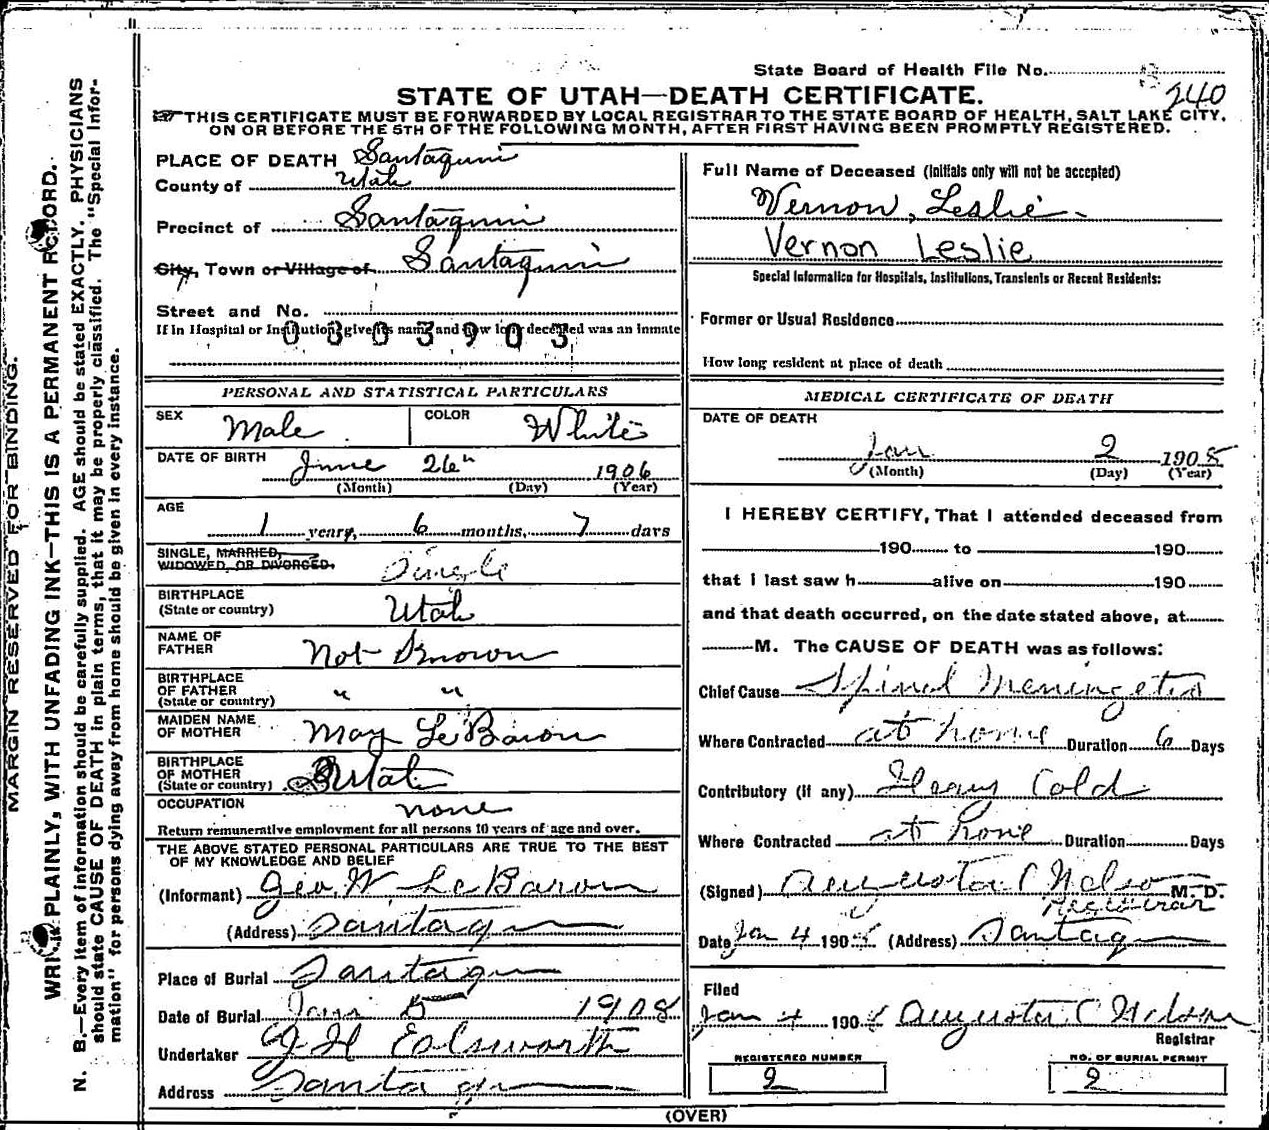 State Board of Health File No.
240
STATE OF UTAH—DEATH CERTIFICATE.
THIS CERTIFICATE MUST BE FORWARDED BY LOCAL REGISTRAR TO THE STATE BOARD OF HEALTH, SALT LAKE CITY,
ON OR BEFORE THE 5TH OF THE FOLLOWING MONTH, AFTER FIRST HAVING BEEN PROMPTLY REGISTERED.
MARGIN RESERVED FOR BINDING.
WRITE PLAINLY, WITH UNFADING INK—THIS IS A PERMANENT RECORD.
N. B.—Every item of information should be carefully supplied. AGE should be stated EXACTLY. PHYSICIANS
should state CAUSE OF DEATH in plain terms, that it may be properly classified. The "Special Infor-
mation" for persons dying away from home should be given in every instance.
PLACE OF DEATH Santaquin
County of Utah
Precinct of Santaquin
City, Town or Village of Santaquin
Street and No.
If in Hospital or Institution, give its name and how long deceased was an inmate
0803903
Full Name of Deceased (Initials only will not be accepted)
Vernon, Leslie
Vernon Leslie
Special Information for Hospitals, Institutions, Transients or Recent Residents:
Former or Usual Residence
How long resident at place of death
PERSONAL AND STATISTICAL PARTICULARS
SEX Male COLOR White
DATE OF BIRTH June 26th 1906
(Month) (Day) (Year)
AGE 1 years, 6 months, 7 days
SINGLE, MARRIED,
WIDOWED, OR DIVORCED. Single
BIRTHPLACE
(State or country) Utah
NAME OF
FATHER Not Known
BIRTHPLACE
OF FATHER
(State or country) " "
MAIDEN NAME
OF MOTHER May LeBaron
BIRTHPLACE
OF MOTHER
(State or country) Utah
OCCUPATION none
Return remunerative employment for all persons 10 years of age and over.
THE ABOVE STATED PERSONAL PARTICULARS ARE TRUE TO THE BEST
OF MY KNOWLEDGE AND BELIEF
(Informant) Geo W LeBaron
(Address) Santaquin
Place of Burial Santaquin
Date of Burial Jan 5 1908
Undertaker J H
Address Santaquin
MEDICAL CERTIFICATE OF DEATH
DATE OF DEATH
Jan 2 1908
(Month) (Day) (Year)
I HEREBY CERTIFY, That I attended deceased from
190 to 190
that I last saw h alive on 190
and that death occurred, on the date stated above, at
M. The CAUSE OF DEATH was as follows:
Chief Cause Spinel Meningetis
Where Contracted at home Duration 6 Days
Contributory (if any) Heavy Cold
Where Contracted at home Duration Days
(Signed) Augusta C Nelson M. D.
Registrar
Date Jan 4 1908 (Address) Santaquin
Filed
Jan 4 1908 Augusta C Nelson
Registrar
REGISTERED NUMBER
2
NO. OF BURIAL PERMIT
2
(OVER)